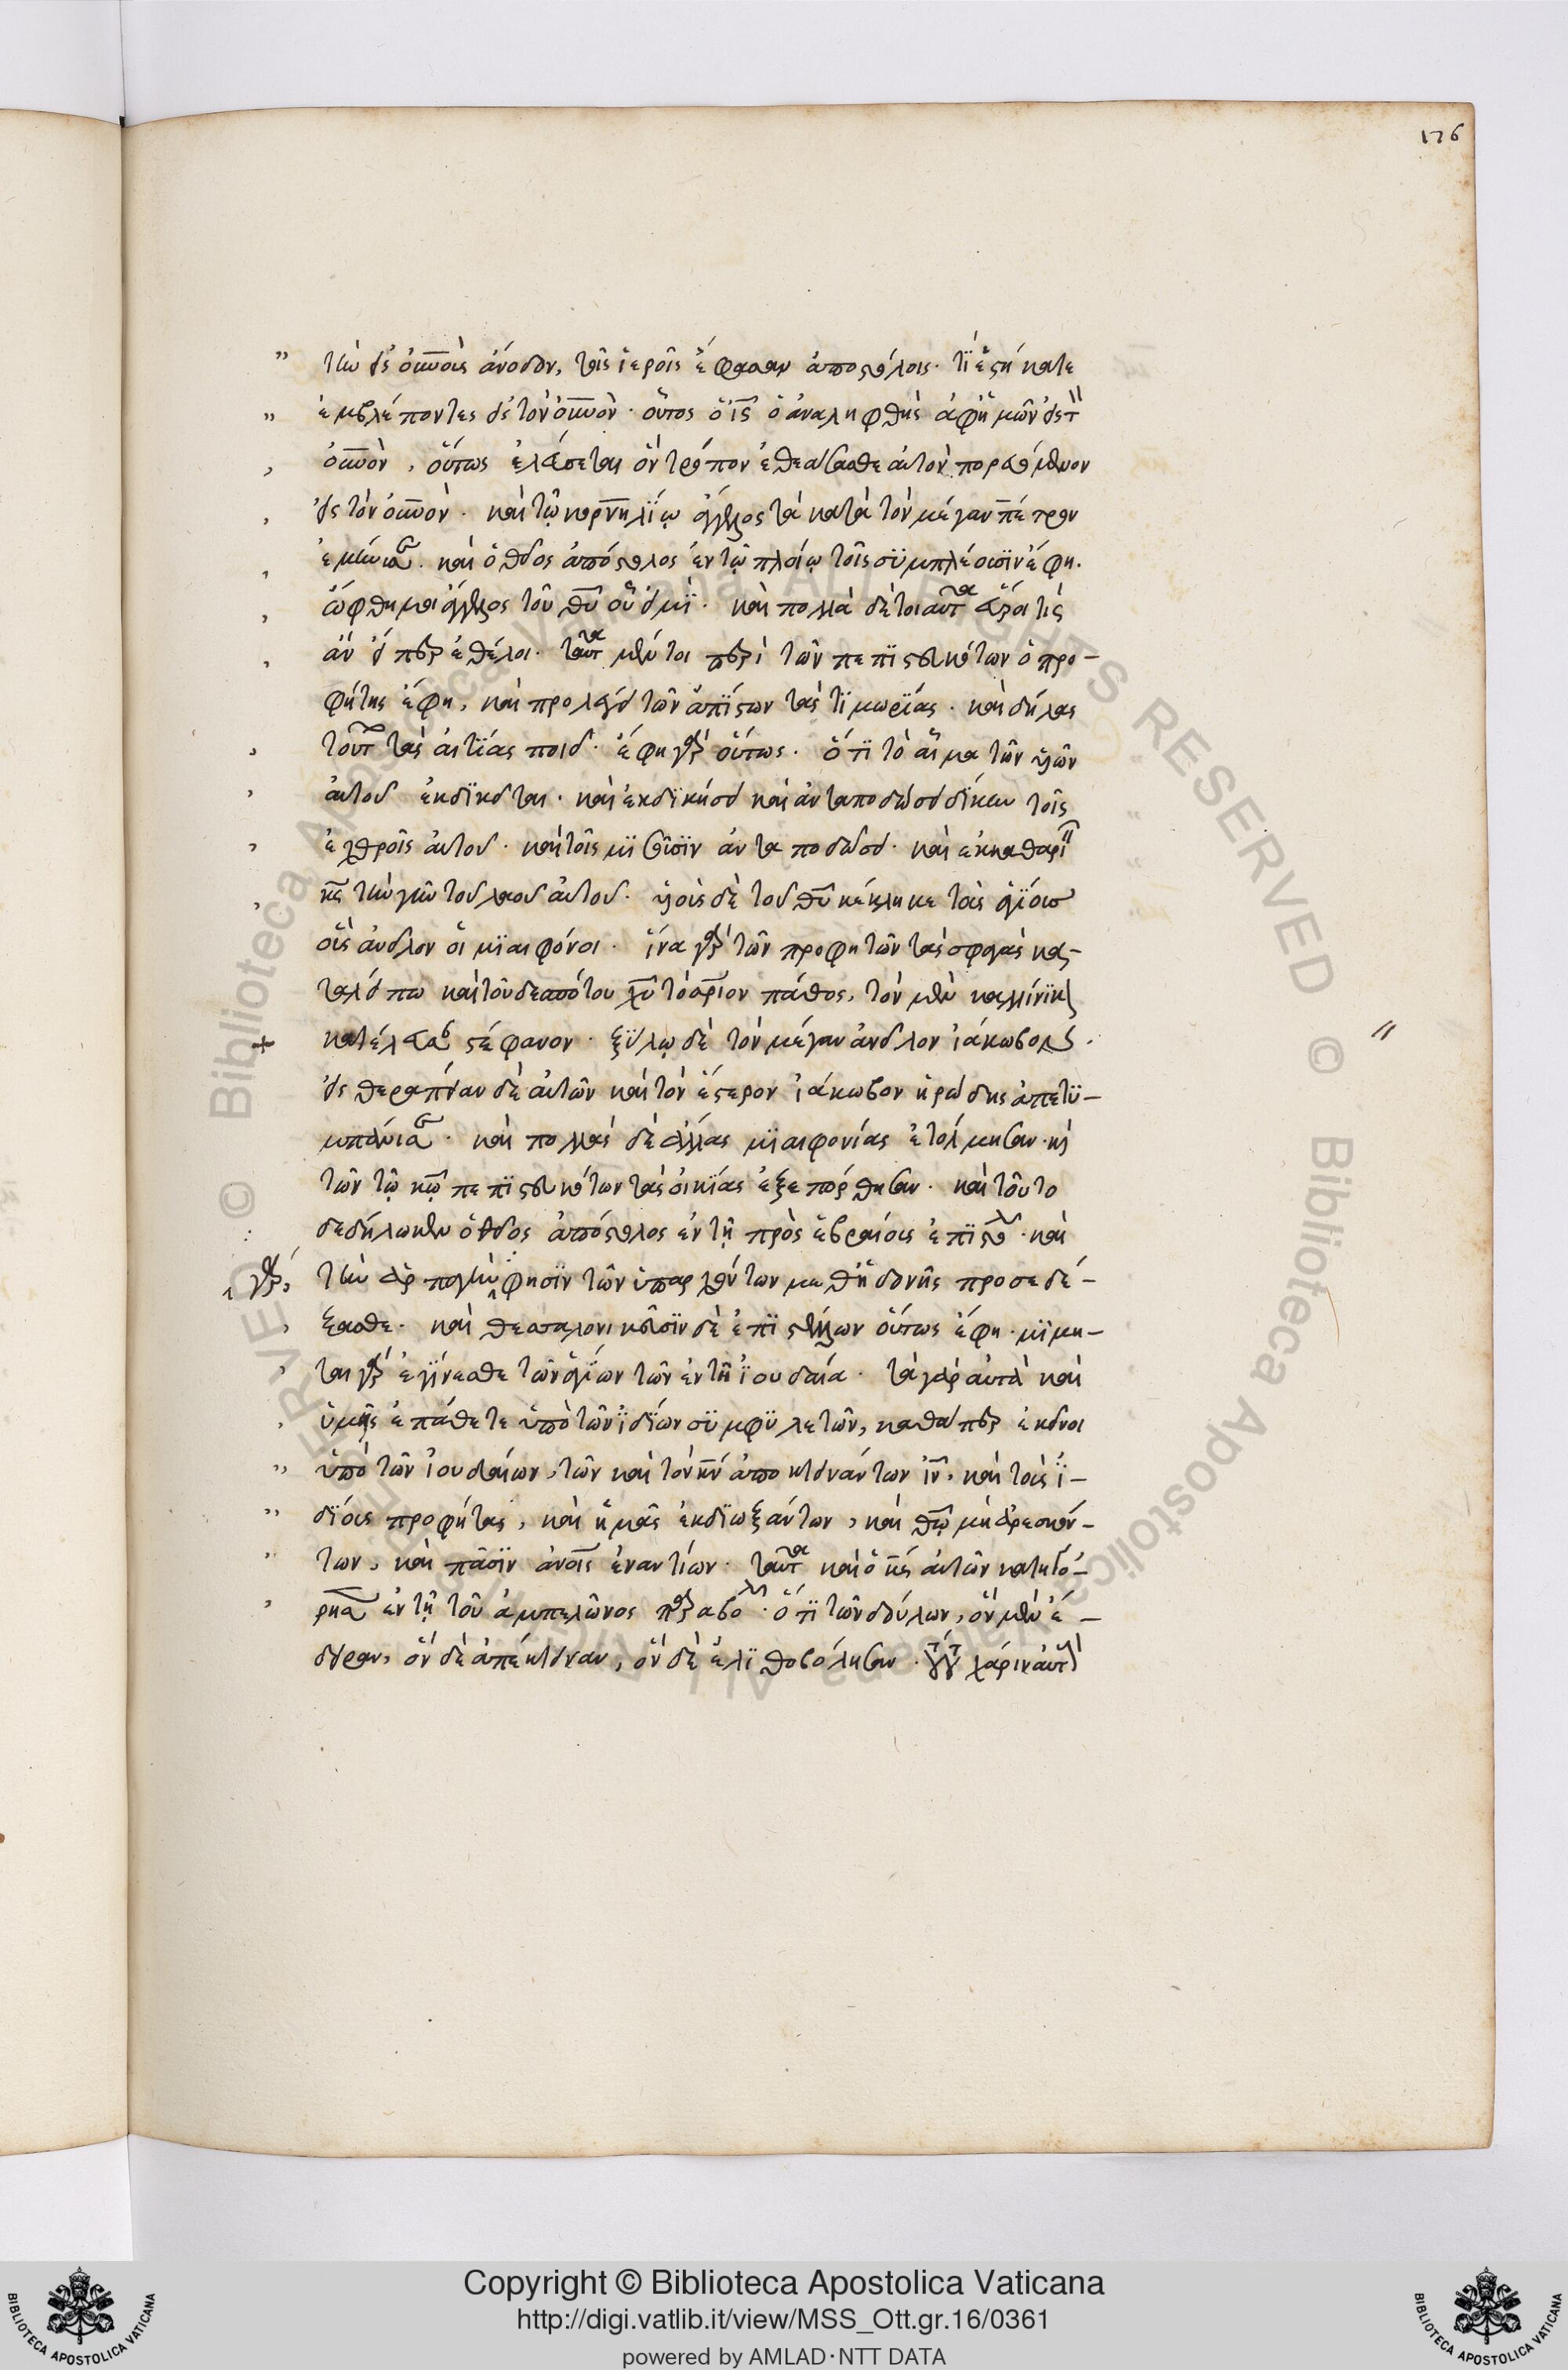 176
τὴν εἰς οὐνοὺς ἄνοδον, τοῖς ἱεροῖς ἔφασαν ἀποστόλοις· τί ἑστήκατε
ἐμβλέποντες εἰς τὸν οὐνόν· οὗτος ὁ ις ὁ ἀναληφθεὶς ἀφ' ἡμῶν εἰς τὸν
οὐνόν, οὕτως ἐλεύσεται ὃν τρόπον ἐθεάσασθε αὐτὸν πορευόμενον
εἰς τὸν οὐνόν· καὶ τῷ κορνηλίῳ ἄγγελος τὰ κατὰ τὸν μέγαν πέτρον
ἐμήνυσε· καὶ ὁ θεῖος ἀπόστολος ἐν τῷ πλοίῳ τοῖς συμπλέουσιν ἔφη·
ὤφθη μοι ἄγγελος τοῦ θυ οὗ εἰμί· καὶ πολλὰ δὲ τοιαῦτα εὕροι τίς
ἂν εἴπερ ἐθέλοι· ταῦτα μέντοι περὶ τῶν πεπιστευκότων ὁ προ-
φήτης ἔφη, καὶ προλέγει τῶν ἀπίστων τὰς τιμωρίας· καὶ δήλας
τούτων τὰς αἰτίας ποιεῖ· ἔφη γὰρ οὕτως· ὅτι τὸ αἷμα τῶν υἱῶν
αὐτοῦ ἐκδικεῖται· καὶ ἐκδικήσει καὶ ἀνταποδώσει δίκην τοῖς
ἐχθροῖς αὐτοῦ· καὶ τοῖς μισοῦσιν ἀνταποδώσει· καὶ ἐκκαθαριεῖ
κς τὴν γῆν τοῦ λαοῦ αὐτοῦ· υἱοὺς δὲ τοῦ θυ κέκληκε τοὺς ἁγίους
οὓς ἀνεῖλον οἱ μιαιφόνοι· ἵνα γὰρ τῶν προφητῶν τὰς σφαγὰς κα-
ταλείπω καὶ τοῦ δεσπότου χυ τὸ σριον πάθος, τὸν μὲν καλλίνικον
κατέλευσαν στέφανον· ξύλῳ δὲ τὸν μέγαν ἀνεῖλον ἰάκωβον·
εἰς θεραπείαν δὲ αὐτῶν καὶ τὸν ἕτερον ἰάκωβον ἡρώδης ἀπετυ-
μπάνισε· καὶ πολλὰς δὲ ἄλλας μιαιφονίας ἐτόλμησαν· καὶ
τῶν τῷ κῳ πεπιστευκότων τὰς οἰκίας ἐξεπόρθησαν· καὶ τοῦτο
δεδήλωκεν ὁ θεῖος ἀπόστολος ἐν τῇ πρὸς ἑβραίους ἐπιστολῇ· καὶ
γὰρ, τὴν ἁρπαγὴν φησὶν τῶν ὑπαρχόντων μεθ' ἡδονῆς προσεδέ-
ξασθε· καὶ θεσσαλονικεῦσιν δὲ ἐπιστέλλων οὕτως ἔφη· μιμη-
ταὶ γὰρ ἐγίνεσθε τῶν ἁγίων τῶν ἐν τῇ ἰουδαία· τὰ γὰρ αὐτὰ καὶ
ὑμεῖς ἐπάθετε ὑπὸ τῶν ἰδίων συμφυλετῶν, καθάπερ ἐκεῖνοι
ὑπὸ τῶν ἰουδαίων, τῶν καὶ τὸν κν ἀποκτεινάντων ιν, καὶ τοὺς ἰ-
δίους προφήτας, καὶ ἡμᾶς ἐκδιωξάντων, καὶ θῷ μὴ ἀρεσκόν-
των, καὶ πᾶσιν ἀνοις ἐναντίων· ταῦτα καὶ ὁ κς αὐτῶν κατηγό-
ρησεν ἐν τῇ τοῦ ἀμπελῶνος παραβολῇ· ὅτι τῶν δούλων, ὃν μὲν ἔ-
δειραν, ὃν δὲ ἀπέκτειναν, ὃν δὲ ἐλιθοβόλησαν· τούτου χάριν αὐτοὺς
Copyright © Biblioteca Apostolica Vaticana
http://digi.vatlib.it/view/MSS_Ott.gr.16/0361
powered by AMLAD·NTT DATA